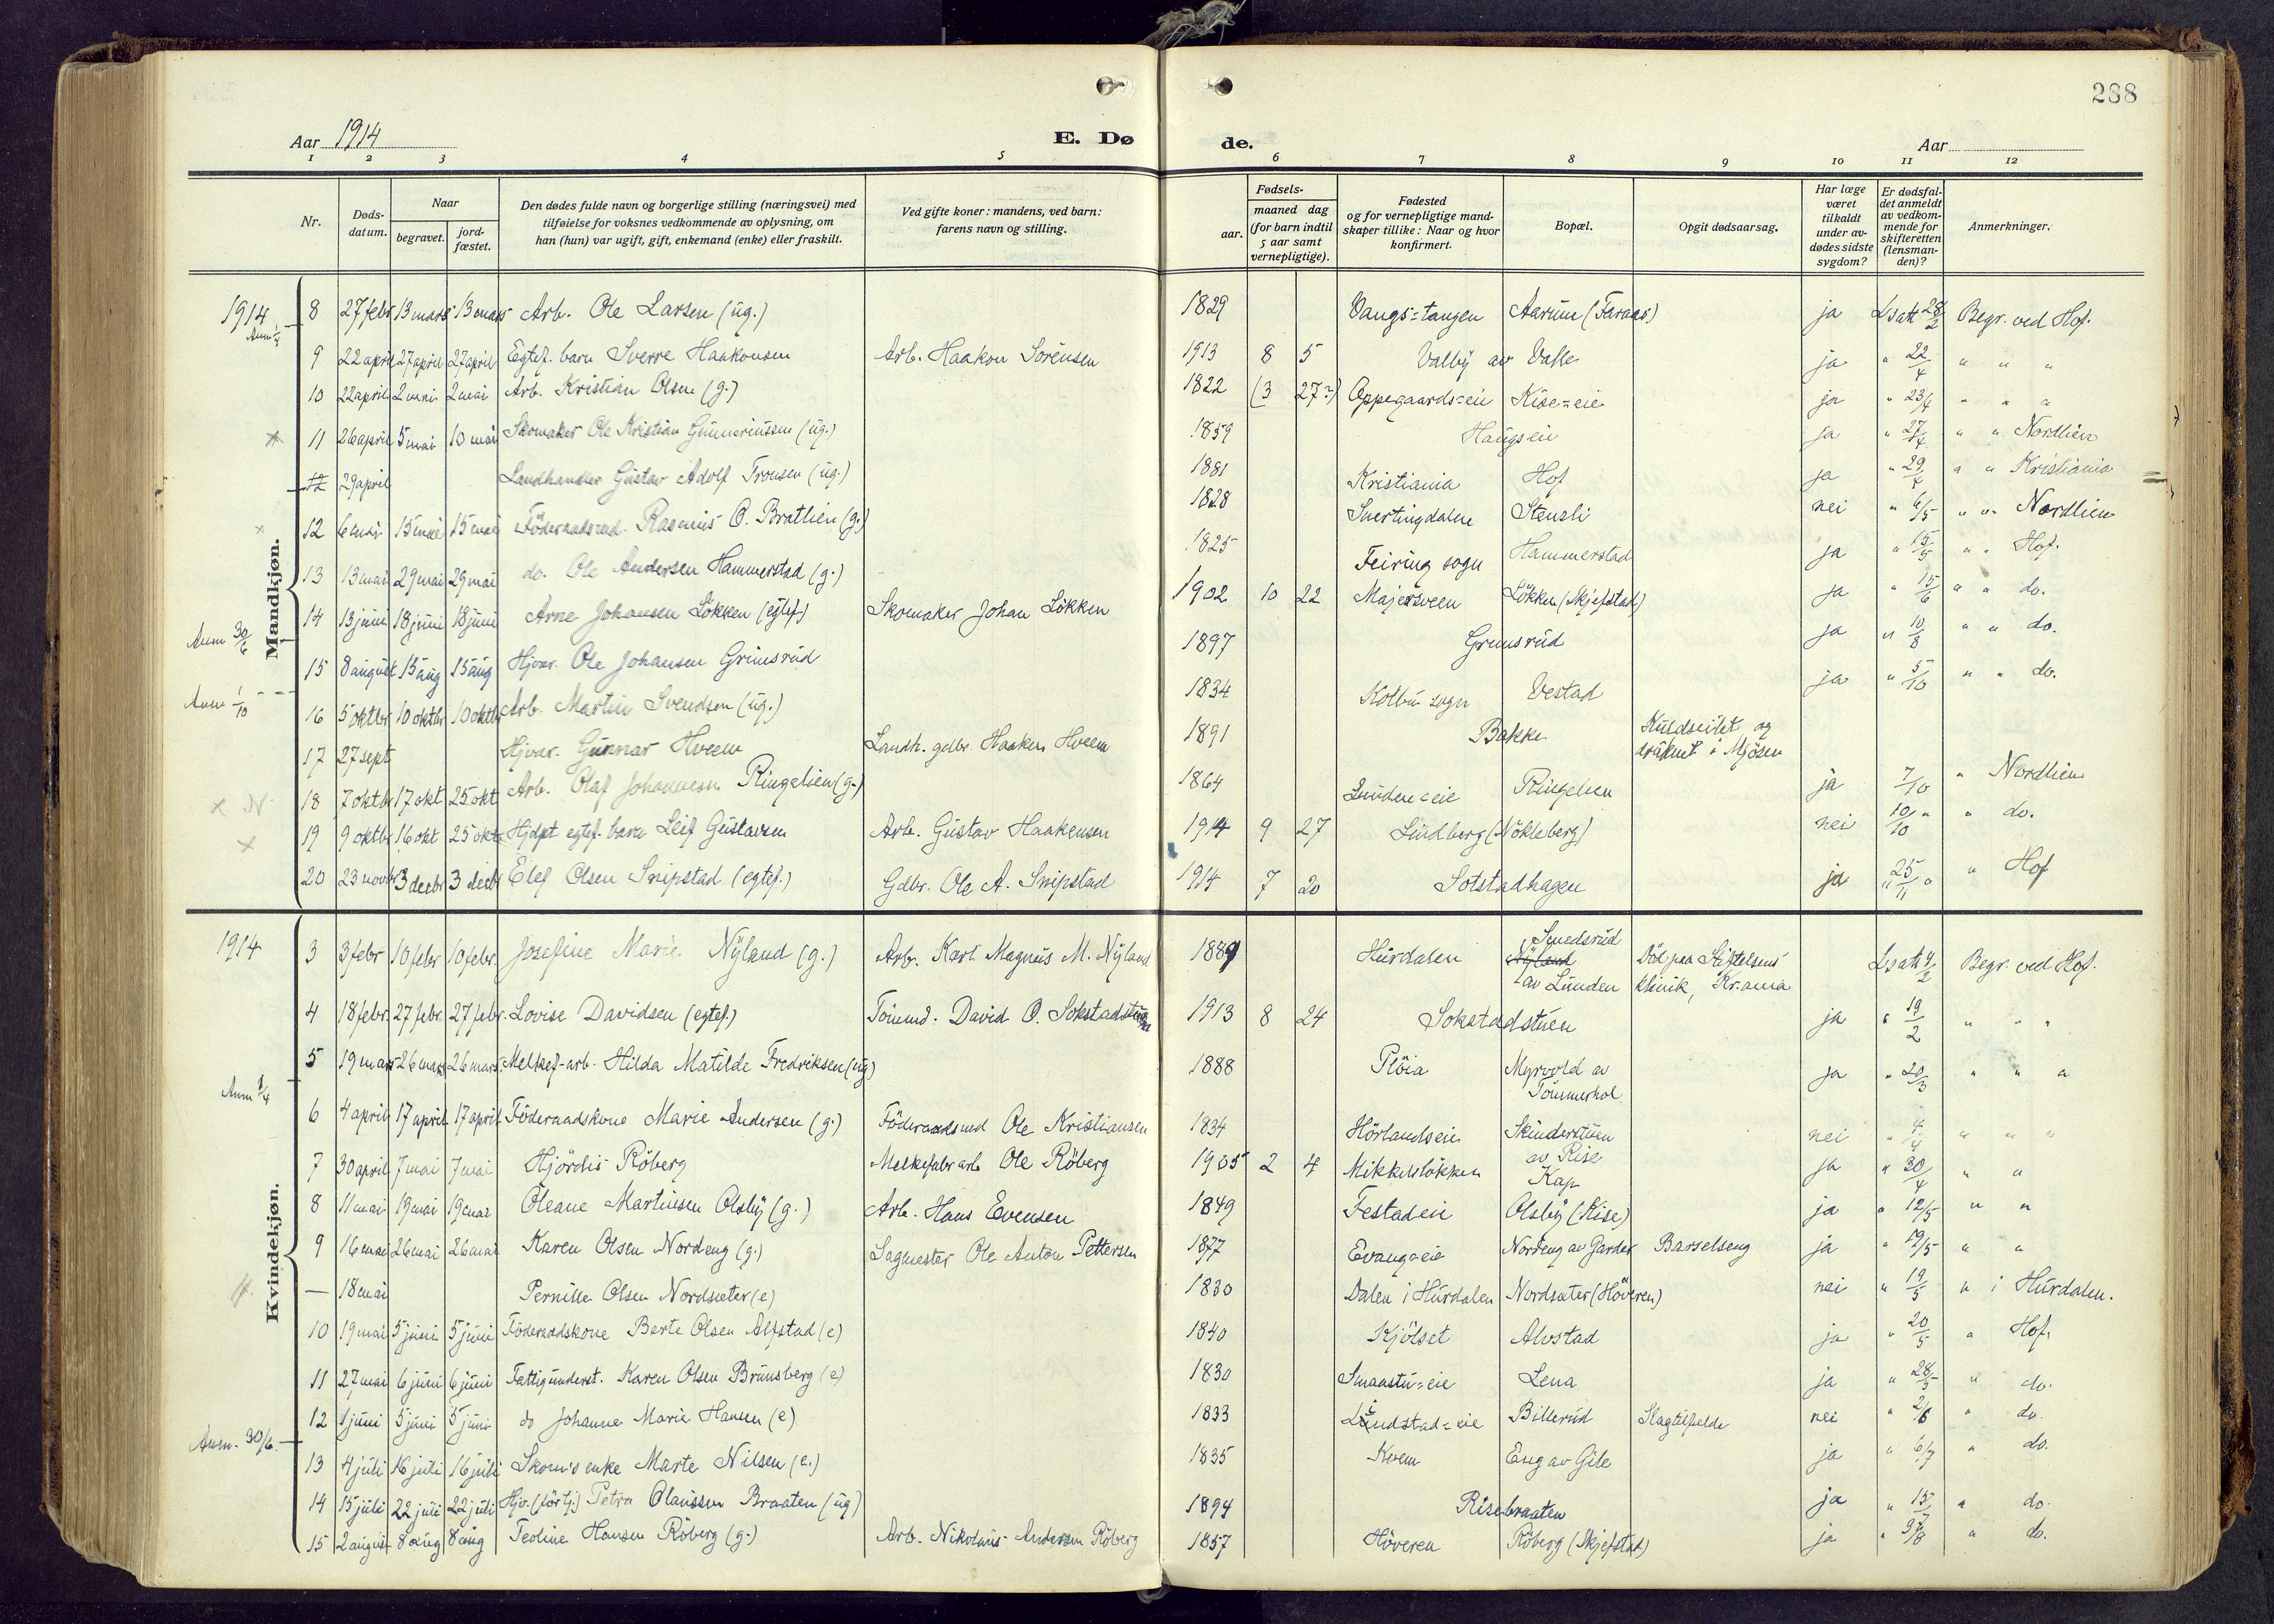 288
Aar 1914
E. Dø
de.
Aar
1 2 3 4 5 6 7 8 9 10 11 12
Nr.
Døds-
datum.
Naar
begravet.
jord-
fæstet.
Den dødes fulde navn og borgerlige stilling (næringsvei) med
tilføielse for voksnes vedkommende av oplysning, om
han (hun) var ugift, gift, enkemand (enke) eller fraskilt.
Ved gifte koner: mandens, ved barn:
farens navn og stilling.
Fødsels-
aar.
maaned dag
(for barn indtil
5 aar samt
vernepligtige).
Fødested
og for vernepligtige mand-
skaper tillike: Naar og hvor
konfirmert.
Bopæl.
Opgit dødsaarsag.
Har læge
været
tilkaldt
under av-
dødes sidste
sygdom?
Er dødsfal-
det anmeldt
av vedkom-
mende for
skifteretten
(lensman-
den)?
Anmerkninger.
Mandkjøn.
1914
8 27 febr 13 mars 13 mars Arb. Ole Larsen (ug.) 1829 Vangs-tangen Aarum (Faraas) ja Lsatt 28/2 Begr. ved Hof.
9 22 april 27 april 27 april Egtef. barn Sverre Haakonsen Arb. Haakon Sörensen 1913 8 5 Valby av Valle ja " 22/4 " " "
10 22 april 2 mai 2 mai Arb. Kristian Olsen (g.) 1822 (3 27?) Oppegaards-eie Kise-eie ja " 23/4 " " "
11 26 april 5 mai 10 mai Skomaker Ole Kristian Gunneriussen (ug.) 1859 Haugseie ja " 27/4 " " Nordlien
12 29 april Landhandler Gustav Adolf Tronsen (ug.) 1881 Kristiania Hof ja " 29/4 " " Kristiania
12 6 mai 15 mai 15 mai Föderaadsmd. Rasmus O. Bratlien (g.) 1828 Snertingdalen Stensli nei " 6/5 " " Nordlien
13 13 mai 29 mai 29 mai do. Ole Andersen Hammerstad (g.) 1825 Feiring sogn Hammerstad ja " 15/5 " " Hof.
14 13 juni 18 juni 18 juni Arne Johansen Lökken (egtef) Skomaker Johan Lökken 1902 10 22 Majersveen Lökken (Skjefstad) ja " 15/6 " " do.
Anm 30/6
15 8 august 15 aug 15 aug Hjvær. Ole Johansen Grimsrud 1897 Grimsrud ja " 10/8 " " do.
Anm 1/10
16 5 oktbr 10 oktbr 10 oktbr Arb. Martin Svendsen (ug.) 1834 Kolbu sogn Vestad ja " 5/10 " " do.
17 27 sept Hjvær. Gunnar Hveem Landh. gdbr. Haaken Hveem 1891 Bakke Kuldseilet og
druknet i Mjösen
18 7 oktbr 17 okt 25 okt Arb. Olaf Johannesen Ringelien (g.) 1864 Lunden-eie Ringelien ja 7/10 " Nordlien
19 9 oktbr 16 okt 25 okt Hjdpt egtef. barn Leif Gustavsen Arb. Gustav Haakensen 1914 9 27 Lindberg (Nökleberg) nei 10/10 " " do.
20 23 novbr 3 decbr 3 decbr Elef Olsen Snipstad (egtef.) Gdbr. Ole A. Snipstad 1914 7 20 Sotstadhagen ja " 25/11 " " Hof
Kvindekjøn.
1914
3 3 febr 10 febr 10 febr. Josefine Marie Nyland (g.) Arb. Karl Magnus M. Nyland 1889 Hurdalen Smedsrud
Nyland
av Lunden Död paa Stiftelsens
klinik, Kr.ania Lsatt 4/2 Begr. ved Hof.
4 18 febr. 27 febr. 27 febr. Lovise Davidsen (egtef.) Tömmd. David O. Sokstadstuen 1913 8 24 Sokstadstuen ja " 19/2 " " "
5 19 mars 26 mars 26 mars Melkef-arb. Hilda Matilde Fredriksen (ug) 1888 Plöia Myrvold av
Tömmerhol ja " 20/3 " " "
6 4 april 17 april 17 april Föderaadskone Marie Andersen (g.) Föderaadsmd Ole Kristiansen 1834 Hörlandseie Skinderstuen
av Rise nei " 4/4 " " "
7 30 april 7 mai 7 mai Hjördis Röberg Melkefabr arb Ole Röberg 1905 2 4 Mikkelslökken Kap ja " 30/4 " "
8 11 mai 19 mai 19 mai Oleane Martinsen Olsby (g.) Arb. Hans Evensen 1849 Festadeie Olsby (Kise) ja " 12/5 " "
9 16 mai 26 mai 26 mai Karen Olsen Nordeng (g.) Sagmester Ole Anton Pettersen 1877 Evang-eie Nordeng av Garder Barselseng ja " 19/5 " "
— 18 mai Pernille Olsen Nordsæter (e) 1830 Dalen i Hurdalen Nordsæter (Höveren) nei " 19/5 " i Hurdalen.
10 19 mai 5 juni 5 juni Föderaadskone Berte Olsen Alfstad (e) 1840 Kjölset Alvstad ja " 20/5 " Hof.
11 27 mai 6 juni 6 juni Fattigunderst. Karen Olsen Brunsberg (e) 1830 Smaastu-eie Lena ja " 28/5 " do.
12 1 juni 5 juni 5 juni do Johanne Marie Hansen (e) 1833 Lundstad-eie Billerud Slagtilfelde nei " 2/6 " do.
Anm. 30/6.
13 4 juli 16 juli 16 juli Skom's enke Marte Nilsen (e.) 1835 Kvem Eng av Gile ja " 6/7 " do.
14 15 juli 22 juli 22 juli Hjv. Petra Olaussen Braaten (ug) 1894 Risebraaten ja " 15/7 " do.
15 2 august 8 aug 8 aug Teoline Hansen Röberg (g.) Arb. Nikolaus Andersen Röberg 1857 Höveren Röberg (Skjefstad) ja " /8 " do.